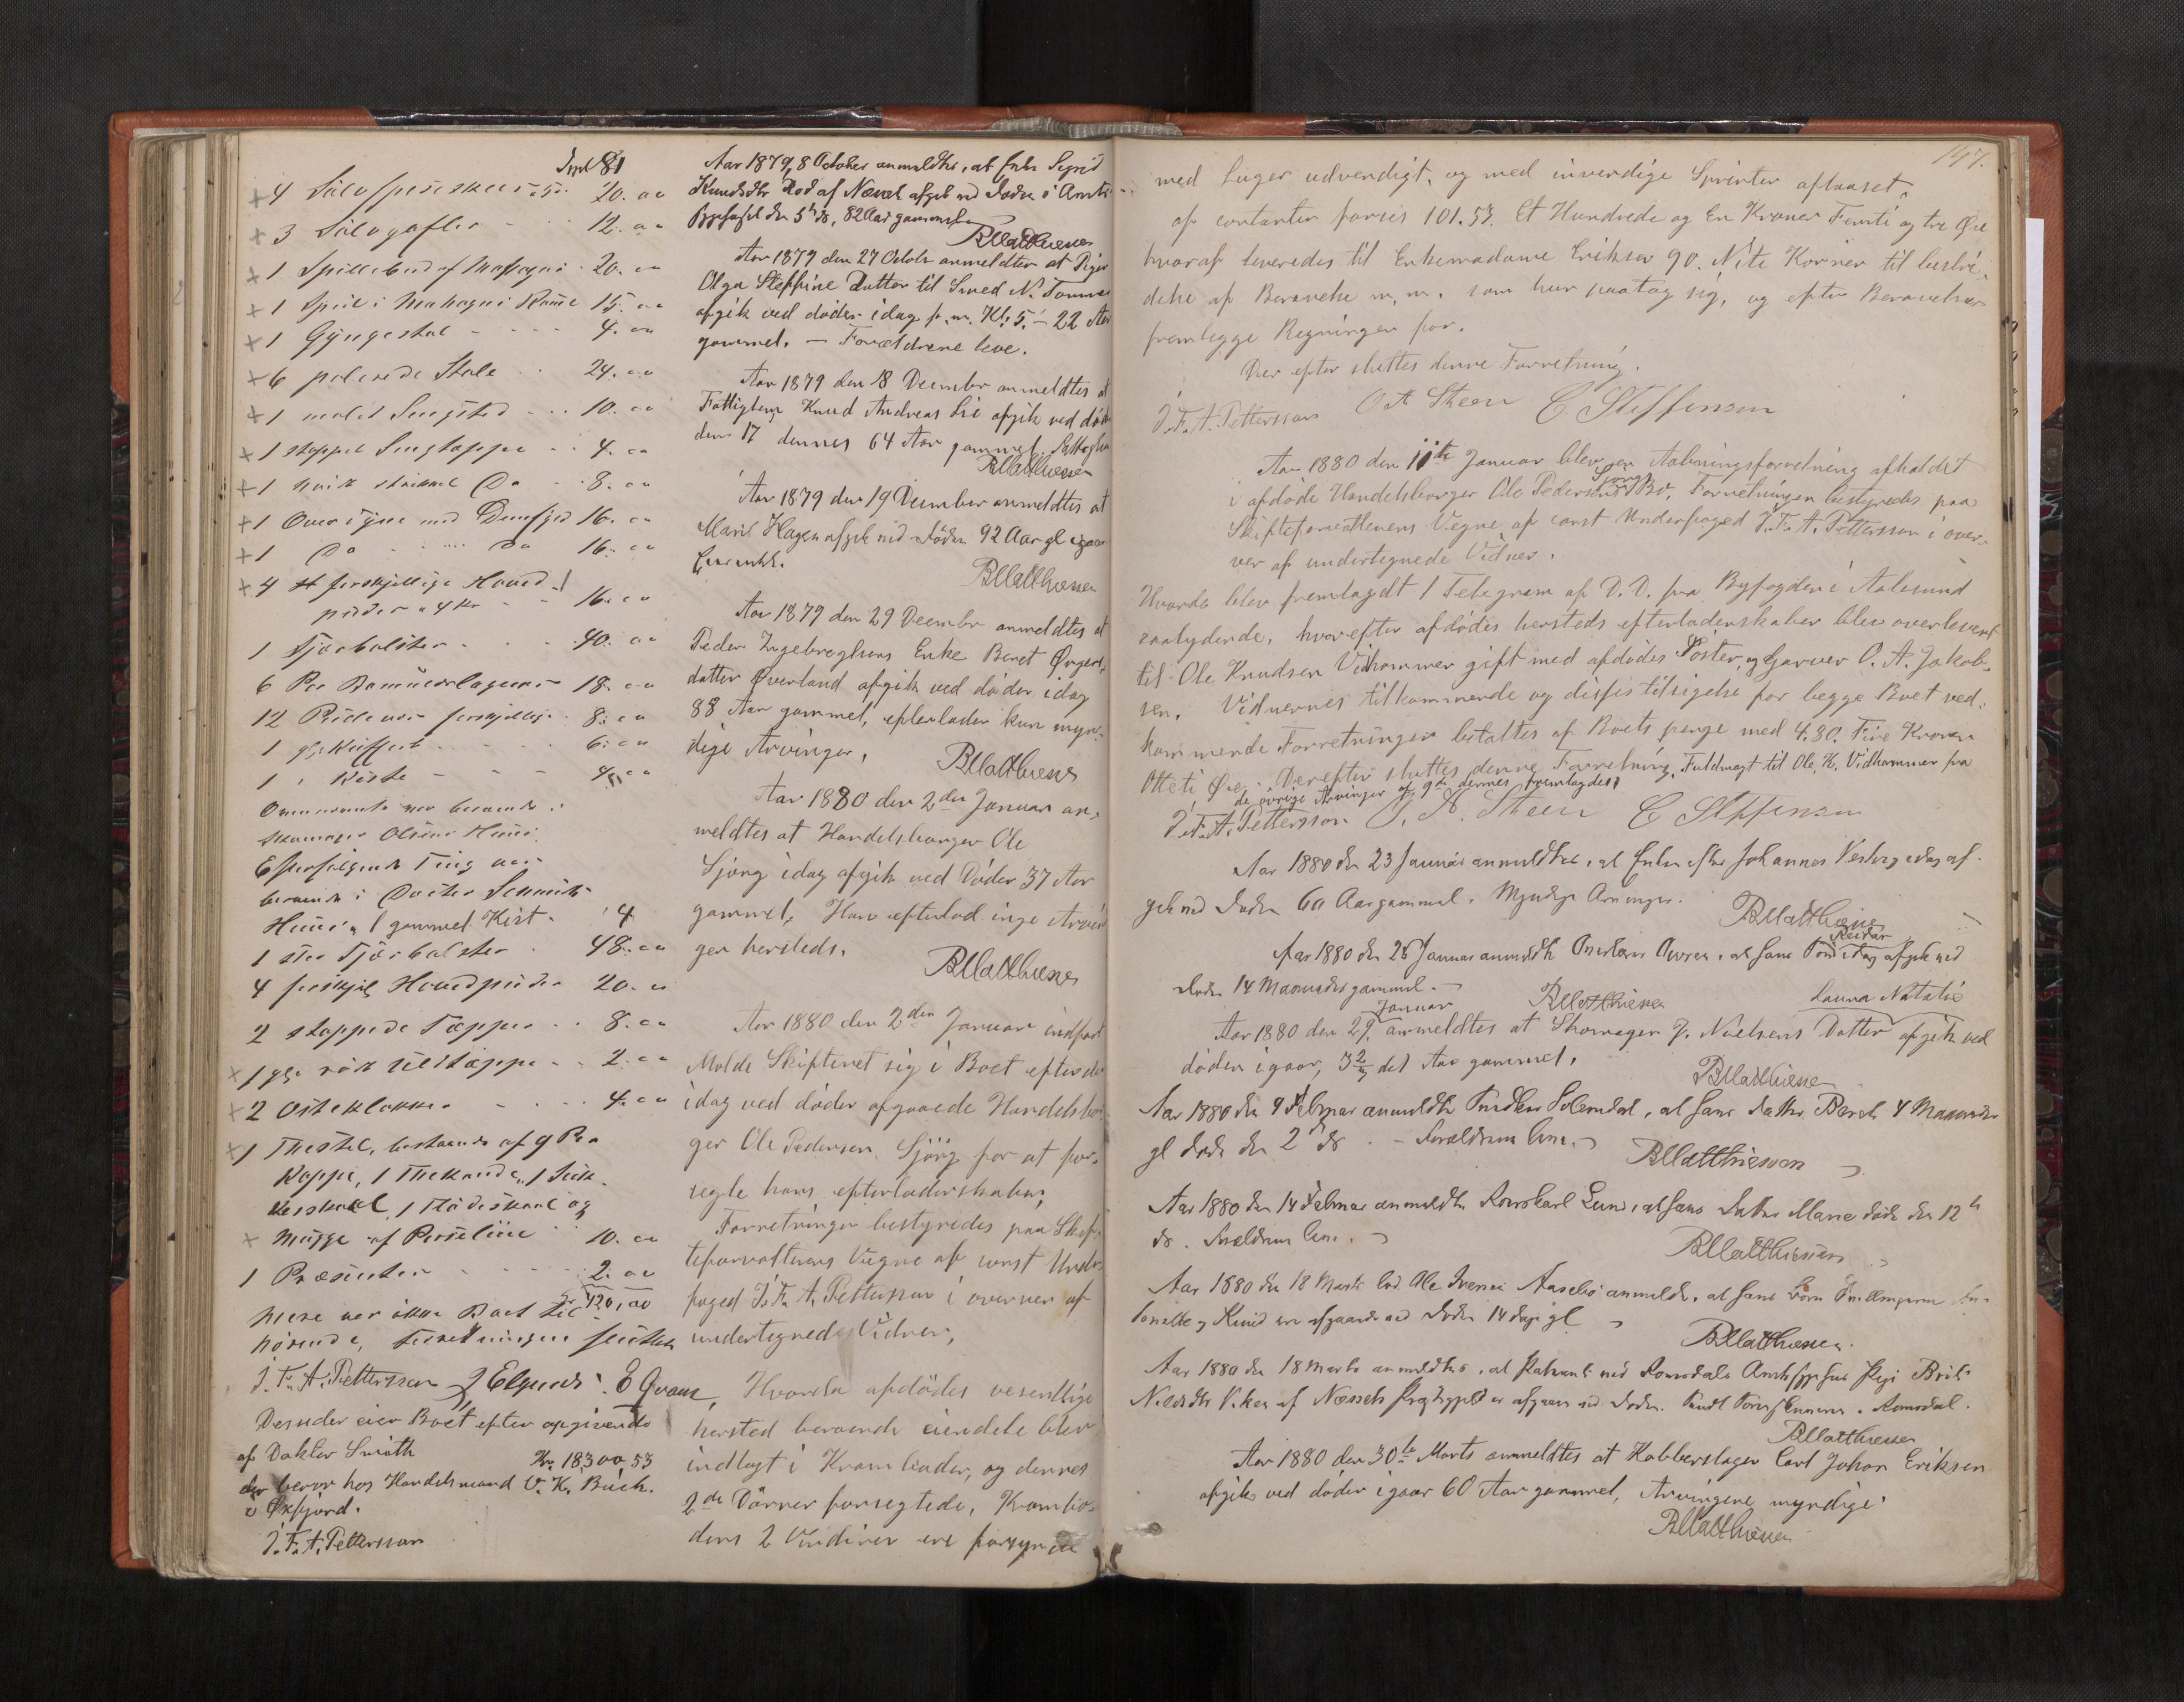 4 Sølvspiseskeer a 5. 20. 00
3 Sølvgafler - 12. 00
1 Spillebord af Mahogni 20. 00
1 Speil i Mahogni Ramme 15. 00
1 Gyngestol - - 4. 00
6 polerede Stole 24. 00
1 malet Sengsted 10. 00
1 stoppet Sengtæppe 4. 00
1 hvit strikket Do 8. 00
1 Overdyne med Duunfjed 16. 00
1 Do Do 16. 00
4 st forskjellige Hoved-
puder a 4 Kr 16. 00
1 Fjærbolster 40. 00
6 Par 18. 00
12 Pudevar forskjellige 8. 00
1 gl. Kuffert 6. 00
1 " Kiste - - 4. 00
Ovennævnte var beroende i
Skomager Olsens Huus.
Efterfølgende Ting var
beroende i Doctor Schmidts
Huus: 1 gammel Kist. 4
1 stor Fjærbolster 48. 00
4 forskjel Hovedpuder 20. 00
2 stoppede Tæpper 8. 00
1 gl. rødt Uldtæppe 2. 00
2 Osteklokker - - 4. 00
1 Thestel, bestaaende af 9 Par
Koppe, 1 Thekande, 1 Suk-
kerskaal, 1 Flødeskaal og
Mugge af Porselin 10. 00
1 Præsenter 2. 00
420,00
Mere var ikke Boet til-
hørende, Forretningen sluttet
J. F. A. Pettersson J Elgnes. E Qvam
Desuden eier Boet efter opgivende
af Doktor Smith Kr. 18300 53
der beror hos Handelsmand O. K. Buch.
i Øxfjord.
J. F. A. Pettersson
Aar 1879, 8 October anmeldtes, at Enke Sigrid
Knudsdtr Rød af Nesset afgik ved Døden i Amts-
sygehuset den 5te ds, 82 Aar gammel.
BMatthiesen
Aar 1879 den 27 Octobr anmeldtes at Pigen
Olga Steffine Datter til Smed N.
afgik ved døden idag f. m. Kl. 5. - 22 Aar
gammel. - Forældrene leve.
Aar 1879 den 18 Decembr anmeldtes at
Fattiglem Knud Andreas Lie afgik ved døden
den 17 dennes 64 Aar gammel.
BMatthiesen
Aar 1879 den 19 December anmeldtes at
Marit Hagen afgik ved Døden 92 Aar gl igaar
BMatthiesen
Aar 1879 den 29 Decembr anmeldtes at
Peder Ingebregtsens Enke Beret
datter Øverland afgik ved døden idag
88 Aar gammel, efterlader kun myn-
dige Arvinger.
BMatthiesen
Aar 1880 den 2den Januar an-
meldtes at Handelsborger Ole
Sjørg idag afgik ved Døden 37 Aar
gammel. Han efterlod inge Arvin
ger hersteds.
BMatthiesen
Aar 1880 den 2den Januar indfant
Molde Skifteret sig i Boet efter den
idag ved døden afgaaede Handelsbor-
ger Ole Pedersen Sjörg for at for-
segle hans efterladenskaber;
Forretningen bestyredes paa Skif-
teforvalterens Vegne af const Under-
foged J. F. A. Pettersson i overvær af
undertegnede Vidner,
Hvorda afdødes vesentlige
hersted beroende eiendele blev
indlagt i Kramboden, og dennes
2de Dörrer forseglede, Krambo-
dens 2 Vinduer ere forsynede
147.
med Luger udvendigt, og med invendige Sprinter aflaaset,
af contanter fanses 101.53. Et Hundrede og En Kroner Femti og tre Øre
hvoraf leveredes til Enkemadame Eriksen 90. Niti Kroner til bestri-
delse af Begravelse m. m. som hun paatog sig, og efter Begravelsen
fremlegge Regningen for.
Der efter sluttes denne Forretning.
J. F. A. Pettersson O A Steen C Steffensen
Aar 1880 den 10de Januar blev en Aabningsforretning afholdet
i afdøde Handelsborger Ole Pedersens Sjörg Bo. Forretningen bestyredes paa
Skifteforvalterens Vegne af const Underfoged J. F. A. Pettersson i over-
vær af undertegnede Vidner.
Hvorda blev fremlagdt 1 Telegram af D. D. fra Byfogden i Aalesund
saalydende, hvorefter afdødes hersteds efterladenskaber blev overleveret
til Ole Knudsen Vidhammer gift med afdødes Söster, og Garver O. A. Jakob-
sen. Vidnernes tilkommende og disses tilsigelse for begge Boet ved-
kommende Forretninger betaltes af Boets penge med 4.80. Fire Kroner
Otteti Øre. Derefter sluttes denne Forretning. Fuldmagt til Ole K. Vidhammer fra
de övrige Arvinger af 9de dennes fremlagdes.
J. F. A. Pettersson O. A. Steen C Steffensen
Aar 1880 den 23 Januar anmeldtes, at Enken efter Johannes Vestry idag af-
gik ved Døden 60 Aar gammel. Myndige Arvinger.
BMatthiesen
Aar 1880 den 26 Januar anmeldte Owren, at hans Søn Reidar idag afgik ved
Døden 14 Maaneder gammel.
BMatthiesen
Aar 1880 den 29. Januar anmeldtes at Skomager J. Nielsens Datter Laura Natalie afgik ved
døden igaar, 3 2/3 det Aar gammel.
BMatthiesen
Aar 1880 den 4 Februar anmeldte Solemdal, at hans datter Beret 4 Maaneder
gl døde den 2d ds. - Forældrene leve.
BMatthiesen
Aar 1880 den 14 Februar anmeldte Lund, at hans Datter Marie døde den 12te
ds. Forældrene leve.
BMatthiesen
Aar 1880 den 18 Marts lod Ole Iversen Aasebø anmelde, at hans Børn Tvillingerne
og Knud ere afgaaede ved Døden 14 dage gl
BMatthiesen.
Aar 1880 den 18 Marts anmeldtes, at Patienten ved Romsdals Amtssygehus Pige Brit
Nielsdtr Viken af Nessets Prestegjeld er afgaaen ved Døden. Romsdal.
BMatthiesen
Aar 1880 den 30te Marts anmeldtes at Kobberslager Carl Johan Eriksen
afgik ved døden igaar 60 Aar gammel, Arvingene myndige.
BMatthiesen